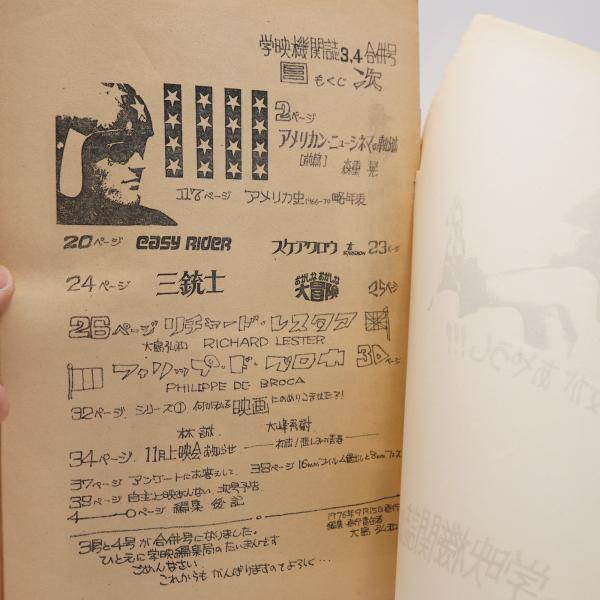 学映機関誌3,4合併号
目もくじ次
2ページ
アメリカン・ニューシネマの軌跡
[前篇] 森重 晃
17ページ アメリカ史1966-70略年表
20ページ easy RideR スケアクロウ 23ページ
24ページ 三銃士 おかしなおかしな大冒険 25ページ
26ページ リチャード・レスター
大島弘和 RICHARD LESTER
フィリップ・ド・ブロカ 30ページ
PHILIPPE DE BROCA
32ページ シリーズ① 何が私を映画にのめりこませた?!
林 誠
34ページ. 11月上映会お知らせ
37ページ アンケートにお答えして. 38ページ 16mmフィルム貸出しと8mmフェス
39ページ 自主上映あんない. 次号予告
40ページ 編集後記
3号と4号が合併号になりました。
ひとえに学映編集局のたいまんです
ごめんなさい
これからもがんばりますのでよろしく…
1976年9月15日発行